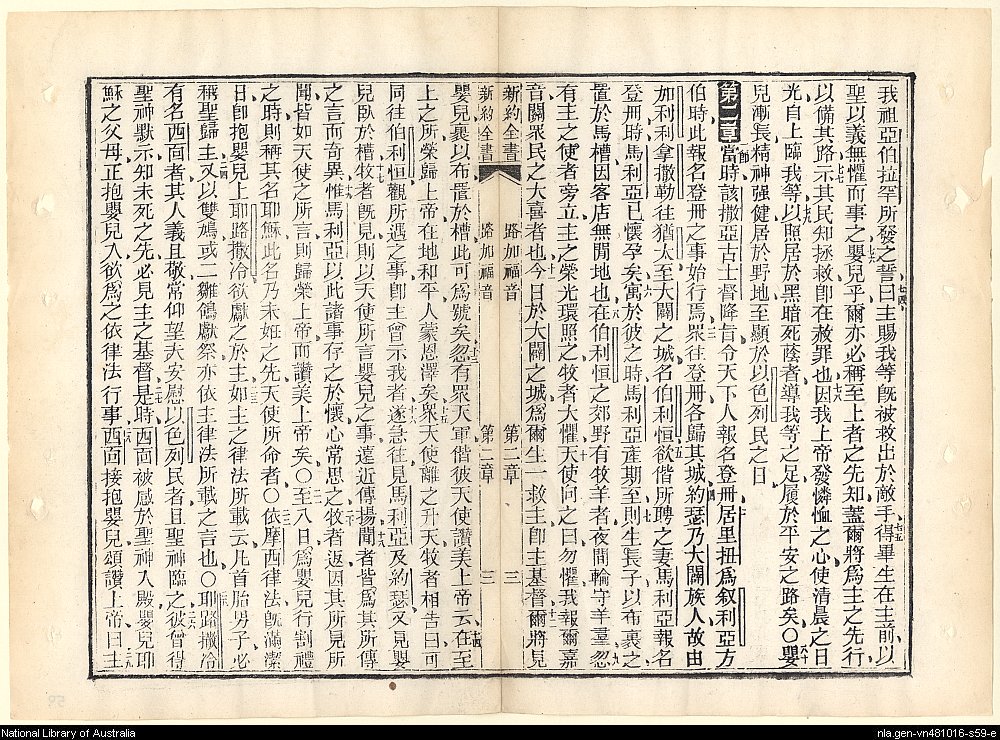 我祖亞伯拉罕所發之誓曰主賜我等旣被救出於敵手得畢生在主前以
聖以義無懼而事之嬰兒乎爾亦必稱至上者之先知蓋爾將爲主之先行
以備其路示其民知拯救卽在赦罪也因我上帝發憐恤之心使清晨之日
光自上臨我等以照居於黑暗死蔭者導我等之足履於平安之路矣〇嬰
兒漸長精神强健居於野地至顯於以色列民之日
第二章 當時該撒亞古士督降旨令天下人報名登册居里扭爲叙利亞方
伯時此報名登册之事始行焉衆往登册各歸其城約瑟乃大闢族人故由
加利利拿撒勒往猶太至大闢之城名伯利恒欲偕所聘之妻馬利亞報名
登册時馬利亞已懷孕矣寓於彼之時馬利亞產期至則生長子以布裹之
置於馬槽因客店無閒地也在伯利恒之郊野有牧羊者夜間輪守羊羣忽
有主之使者旁立主之榮光環照之牧者大懼天使向之曰勿懼我報爾嘉
音關衆民之大喜者也今日於大闢之城爲爾生一救主卽主基督爾將見
新約全書 路加福音 第二章 三
新約全書 路加福音 第二章 三
嬰兒裹以布置於槽此可爲號矣忽有衆天軍偕彼天使讚美上帝云在至
上之所榮歸上帝在地和平人蒙恩澤矣衆天使離之升天牧者相告曰可
同往伯利恒觀所遇之事卽主曾示我者遂急往見馬利亞及約瑟又見嬰
兒臥於槽牧者旣見則以天使所言嬰兒之事遠近傳揚聞者皆爲其所傳
之言而奇異惟馬利亞以此諸事存之於懷心常思之牧者返因其所見所
聞皆如天使之所言則歸榮上帝而讚美上帝矣〇至八日爲嬰兒行割禮
之時則稱其名耶穌此名乃未妊之先天使所命者〇依摩西律法旣滿潔
日卽抱嬰兒上耶路撒冷欲獻之於主如主之律法所載云凡首胎男子必
稱聖歸主又以雙鳩或二雛鴿獻祭亦依主律法所載之言也〇耶路撒冷
有名西面者其人義且敬常仰望夫安慰以色列民者且聖神臨之彼曾得
聖神默示知未死之先必見主之基督是時西面被感於聖神入殿嬰兒耶
穌之父母正抱嬰兒入欲爲之依律法行事西面接抱嬰兒頌讚上帝曰主
National Library of Australia
nla.gen-vn481016-s59-e